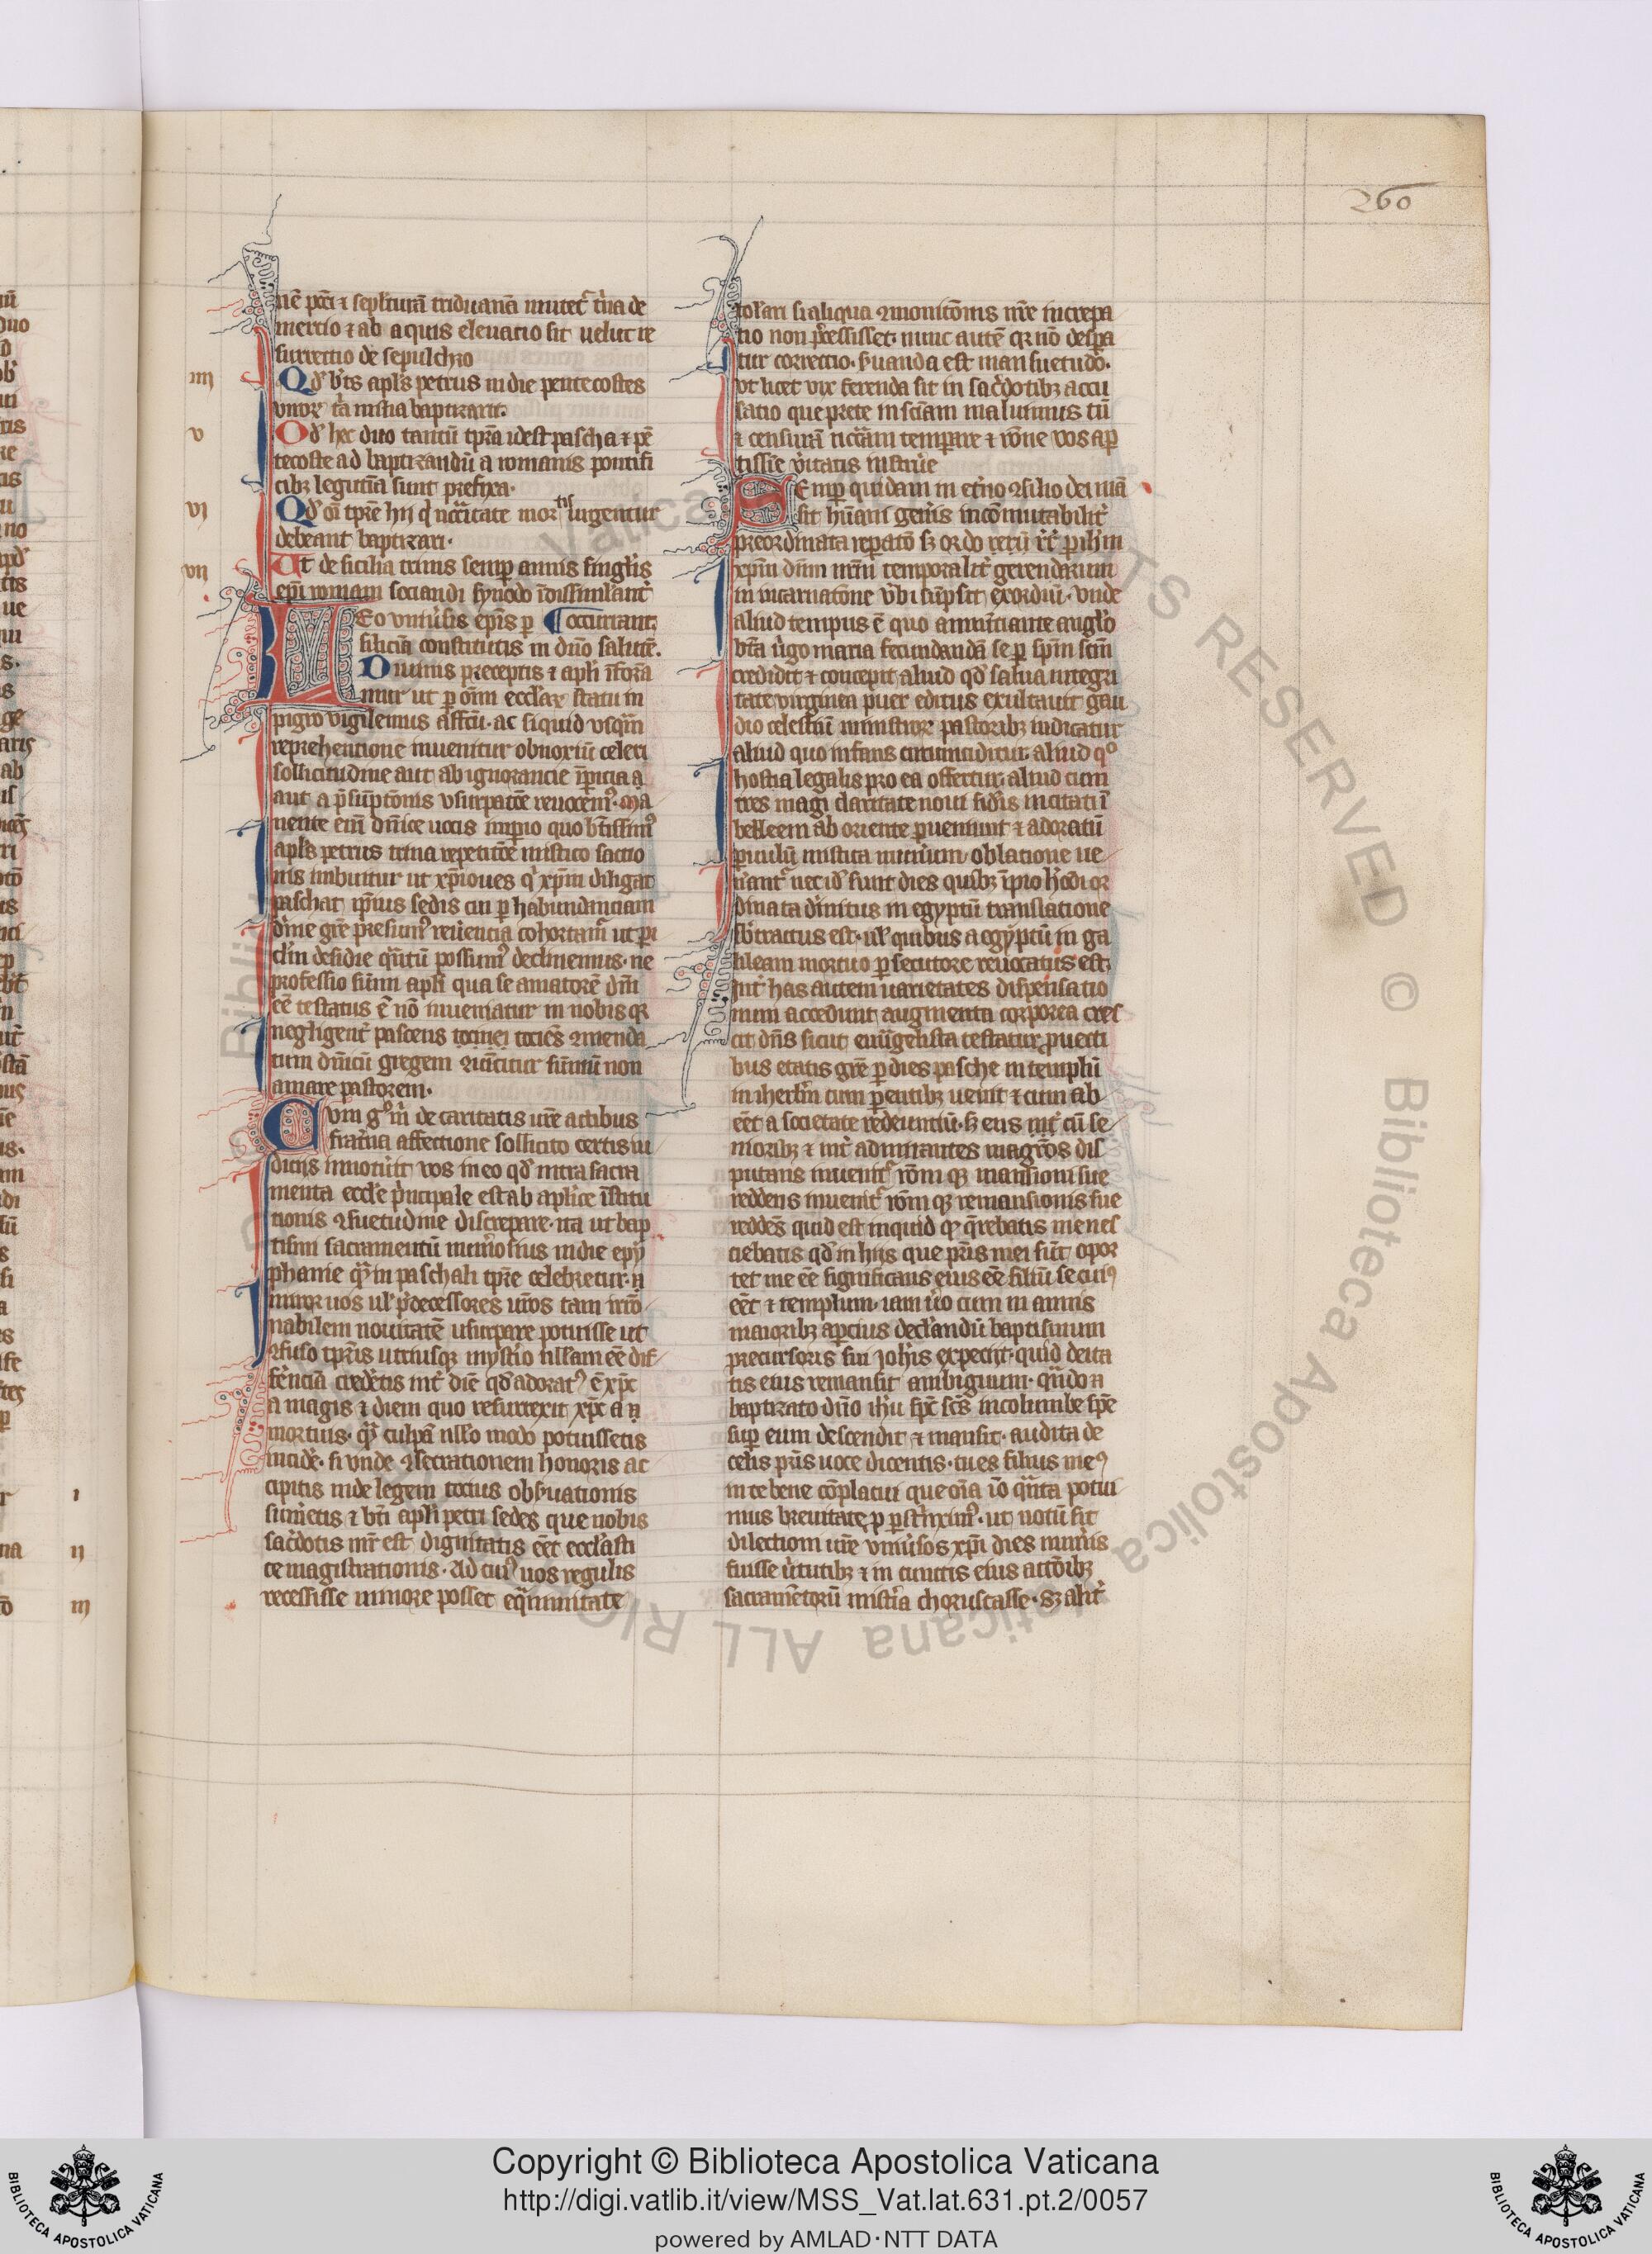 260
nē pcci ⁊ sepl'turā triduanā mitet᷑ t'na de
mercio ⁊ ab aquis eleuatio sit uelut re
surrectio de sepulchro
iiii
Qd' b'ts apl's petrus in die pentecostes
v
Qd' hec duo tantū tp̄ra idest pascha ⁊ pē
tecoste ad baptizandū a romanis pontifi
cibꝫ legittīa sunt prefixa.
vi
Qd' oī tp̄re hii q' nccitate mortis urgentur
debeant baptizari.
vii
Ut de sicilia trinis semp annis singl'is
epī romam sociandi synodo īdissimlant'
LEo uniu'sis ep̄is p ¶ occurrant
siliciā constitutis in dn̄o salutē.
Diuinis preceptis ⁊ apl'i īforma
mur ut p om̄ eccl'arꝫ statu in
pigro vigilemus affcū. ac si quid usqm̄
reprehentione inuenitur obnoxiū celeri
sollicitudine aut ab ignorancie īpicia a
aut a p̄sūptōnis vsurpatōe reuocem᷒. ma
nente enī dn̄ice uocis impio quo b'tissim᷒
apl's petrus trina repetitōe mistico sactio
nis imbuitur ut xp̄i oues q' xp̄m diligat
paschat ip̄ius sedis cui p habundanciam
d'ine gr̄e presum᷒ reuerencia cohortam᷑ ut pi
cl'm desidie qntū possum᷒ declinemus. ne
professio sūmi apl'i qua se amatorē dn̄i
eē testatus ē nō inueniatur in nobis qꝛ
negligent' pascens tociens tociēs ꝯmenda
tum dn̄icū gregem ꝯuīcitur sūmū non
amare pastorem.
Cum g° m' de caritatis ur̄e actibus
frat'na affectione sollicito certis in
diciis innotuit vos in eo qd' intra sacra
menta eccl'e p'ncipale est ab aplice īstitu
tionis ꝯsuetudine discrepare. ita ut bap
tismi sacramentū num'osius in die epy
phanie qm in paschali tp̄re celebretur. n
miror uos ul' p'decessores uros tam irrō
nabilem nouitatē usurpare potuisse ut
ꝯfuso tp̄ris utriusqꝫ mysterio nllam eē dif
fer'nciā credetis int' diē qd' adorat᷒ ē xp̄c
a magis ⁊ diem quo resurrexit xp̄c a
mortuis. qm culpā nllo modo potuissetis
incid'e. si vnde ꝯsecrationem honoris ac
cipitis inde legem tocius obs'uationis
sum'etis ⁊ b'ti apl'i petri sedes que nobis
sac'dotis mr̄ est dignitatis eēt eccl'asti
ce magistrationis. Ad cui᷒ uos regulis
recessisse minore posset eqnimitate
tol'ari si aliqua ꝯmonitōnis nr̄e increpa
tio non p'cessisset. nunc autē qꝛ nō despa
tur correctio. s'uanda est mansuetudo.
vt licet vix ferenda sit in sac'dotibꝫ accu
satio que p̄te insciam maluimus tn̄
⁊ censurā nccam tempare ⁊ rōne vos ap
tissīe v'itatis instrue
Semp quidam in et'no ꝯsilio dei mā
sit hūani gen'is incōmutabilit'
preordinata repatō sꝫ ordo rerū p ih'm
xp̄m dn̄m nr̄m temporalit' gerendarum
in incarnatōne v'bi sūpsit exordiū. vnde
aliud tempus ē quo annūciante angl'o
b'ta u'go maria fecundandā se p sp̄m scm̄
credidit ⁊ concepit aliud qd' salua integri
tate virginea puer editus exultauit gau
dio celestiū ministrorꝫ pastoribꝫ indicatur
aliud quo infans circunciditur. aliud q°
hostia legalis pro ea offertur. aliud cum
tres magi claritate noui sid'is incitati ī
bethleem ab oriente pueniunt ⁊ adoratū
puulū mistica mun'um oblatione ue
n'ant᷑ nec id' sunt dies quibꝫ īpio h'odi or
dinata d'initus in egyptū translatione
sb'tractus est. ul' quibus a egyptū in ga
lileam mortuo psecutore reuocatus est
int' has autem uarietates dispensatio
num accedunt augmenta corporea cres
cit dn̄s sicut euūgelista testatur puecti
bus etatis gr̄e p dies pasche in templū
in iherl'm cum parentibꝫ uenit ⁊ cum ab
eēt a societate redeuntiū. sꝫ eus int' cū se
nioribꝫ ⁊ int' admirantes magr̄os dis
putans inuenit᷑ rōm qꝫ mansioni sue
reddens inuenit᷑ rōm qꝫ remansionis sue
reddēs quid est inquid ꝙ q̄rebatis me nes
ciebatis qd' in hiis que pr̄is mei sūt opor
tet me eē significans eius eē filiū se cui᷒
eēt ⁊ templum. iam u'o cum in annis
maioribꝫ apcius decl'andū baptismum
precursoris sui ioh'is expeciit. quid deita
tis eius remansit ambiguum. qn̄do a
baptizato dn̄o ih'u sp̄c sc̄s in columbe sp̄e
sup eum descendit ⁊ mansit. audita de
celis pr̄is uoce dicentis. tu es filius me᷒
in te bene cōplacui que oīa iō qnta potui
mus breuitate p pstrīxim᷒. ut notū sit
dilectioni ur̄e vniu'sos xp̄i dies num'is
fuisse u'tutibꝫ ⁊ in cunctis eius actōibꝫ
sacram̄torū mist'ia choruscasse. sꝫ alit'
Copyright © Biblioteca Apostolica Vaticana
http://digi.vatlib.it/view/MSS_Vat.lat.631.pt.2/0057
powered by AMLAD·NTT DATA